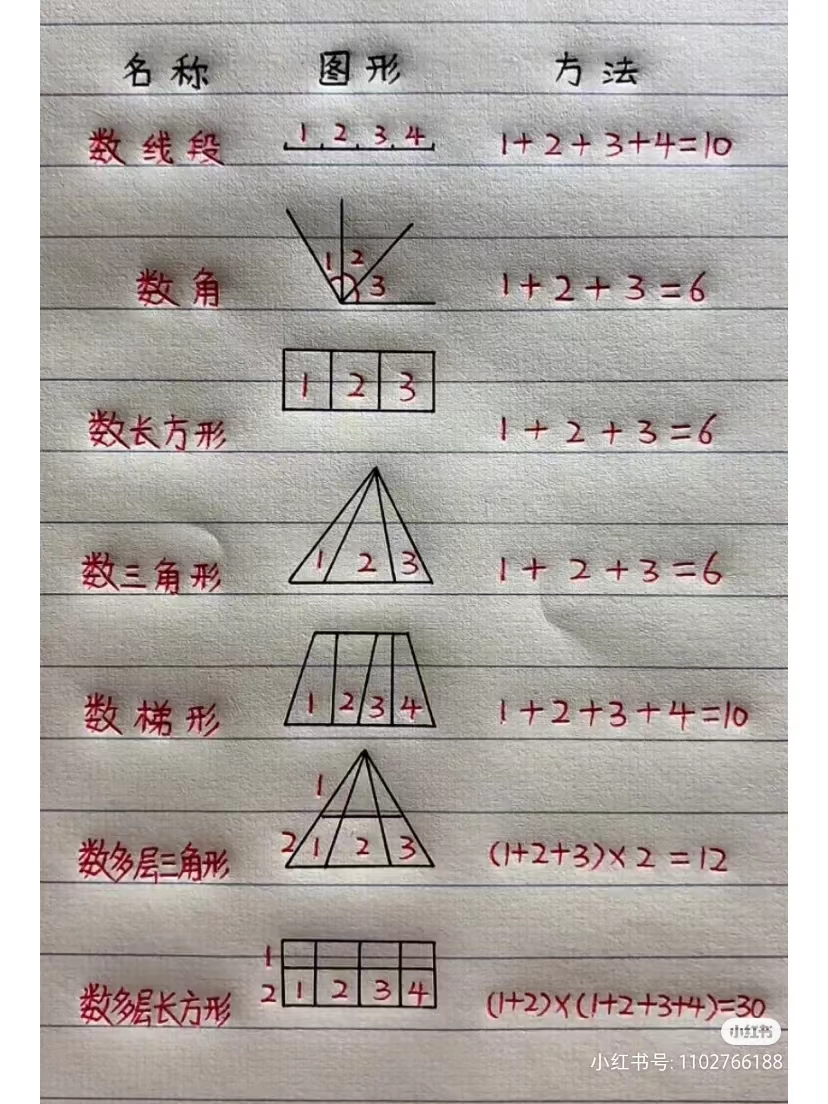 名称 图形 方法
数线段 1 2 3 4 1+2+3+4=10
数角 1 2 3 1+2+3=6
数长方形 1 2 3 1+2+3=6
数三角形 1 2 3 1+2+3=6
数梯形 1 2 3 4 1+2+3+4=10
1
数多层三角形 2 1 2 3 (1+2+3)×2=12
1
数多层长方形 2 1 2 3 4 (1+2)×(1+2+3+4)=30
小红书
小红书号: 1102766188